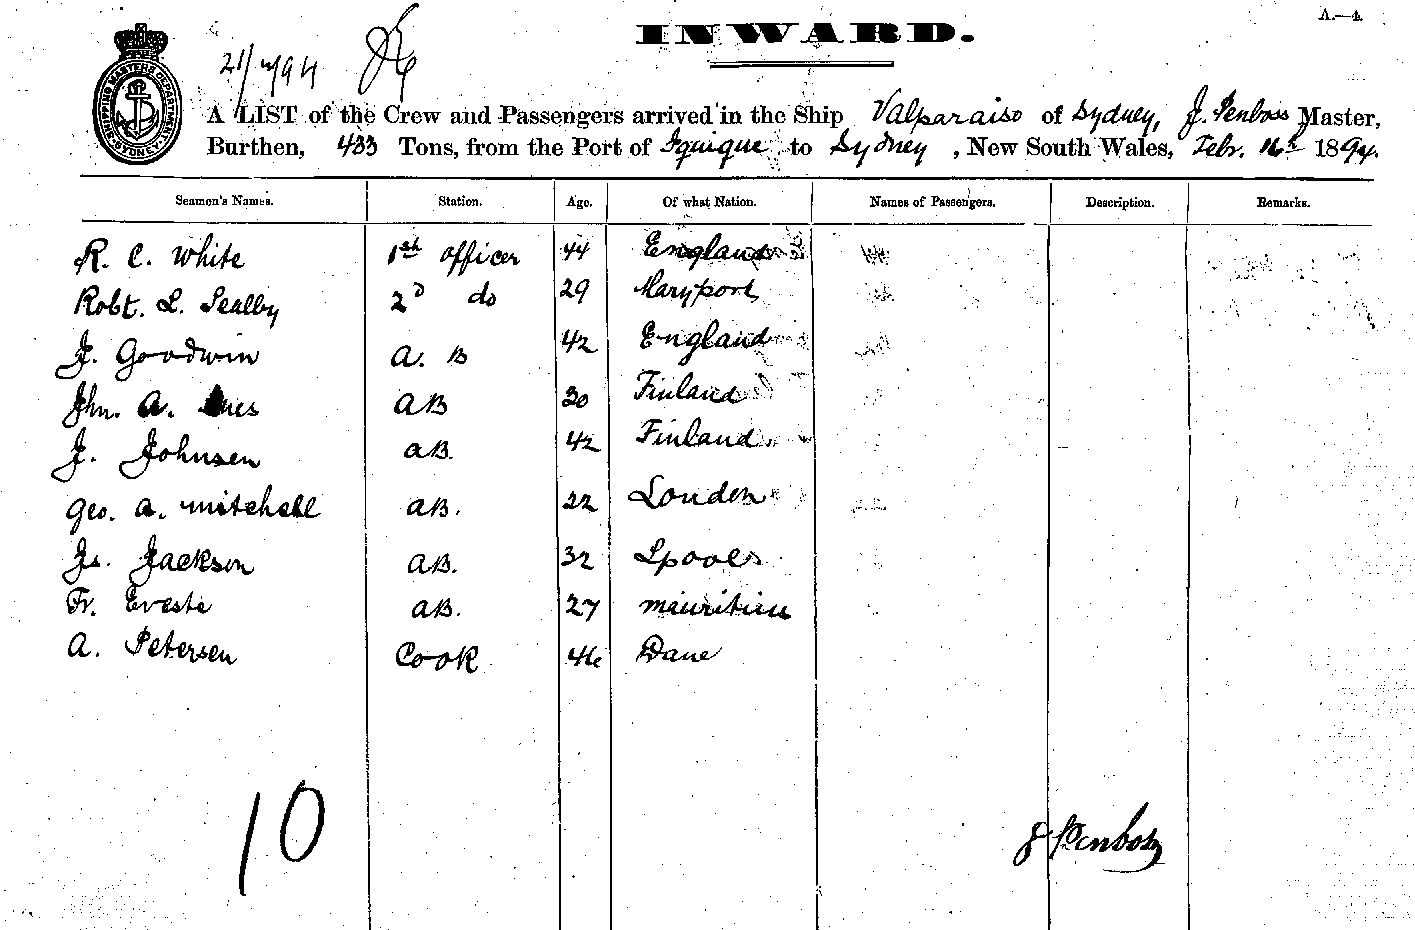 A.—4.
INWARD.
21/2/94
SHIPPING MASTERS DEPARTMENT SYDNEY
A LIST of the Crew and Passengers arrived in the Ship Valparaiso of Sydney, J. Penboss Master,
Burthen, 433 Tons, from the Port of Iquique to Sydney, New South Wales, Febr. 16th 1894.
Seamen's Names. Station. Age. Of what Nation. Names of Passengers. Description. Remarks.
R. C. White 1st officer 44 England
Robt. L. Sealby 2D do 29 Maryport
J. Goodwin A. B 42 England
Jhn. A. AB 30 Finland
J. Johnsen AB. 42 Finland
Geo. A. Mitchell AB. 22 London
Js. Jackson AB. 32
Fr. Evesta AB. 27 Mauritius
A. Petersen Cook 46 Dane
10
J Penboss